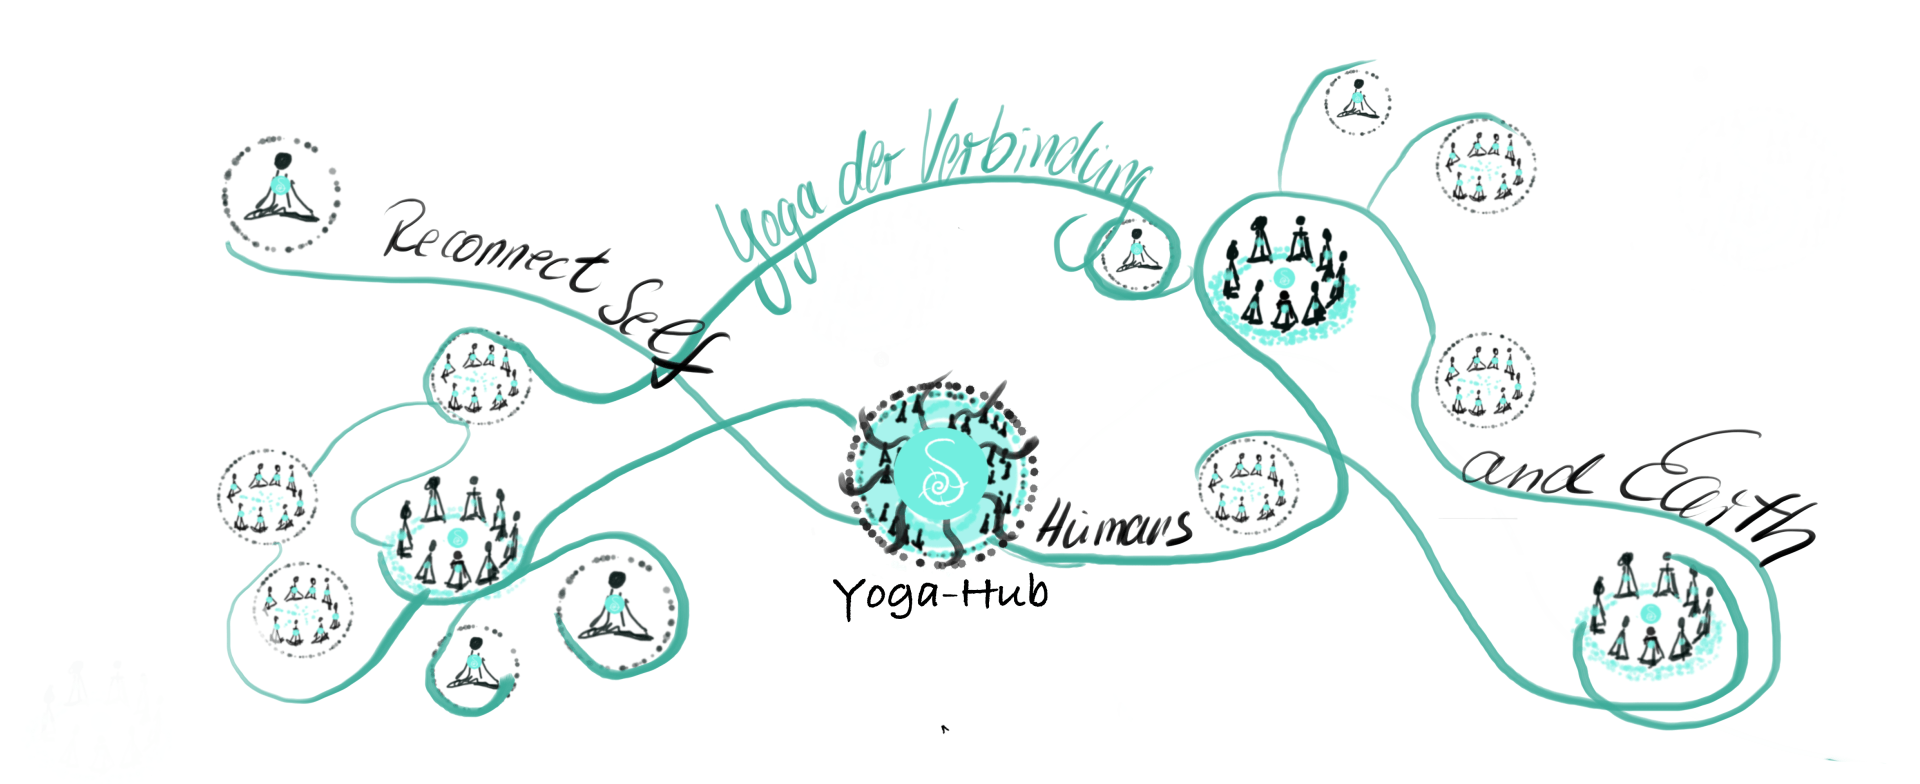 Yoga der Verbindung
Reconnect Self
Humans
and Earth
Yoga-Hub